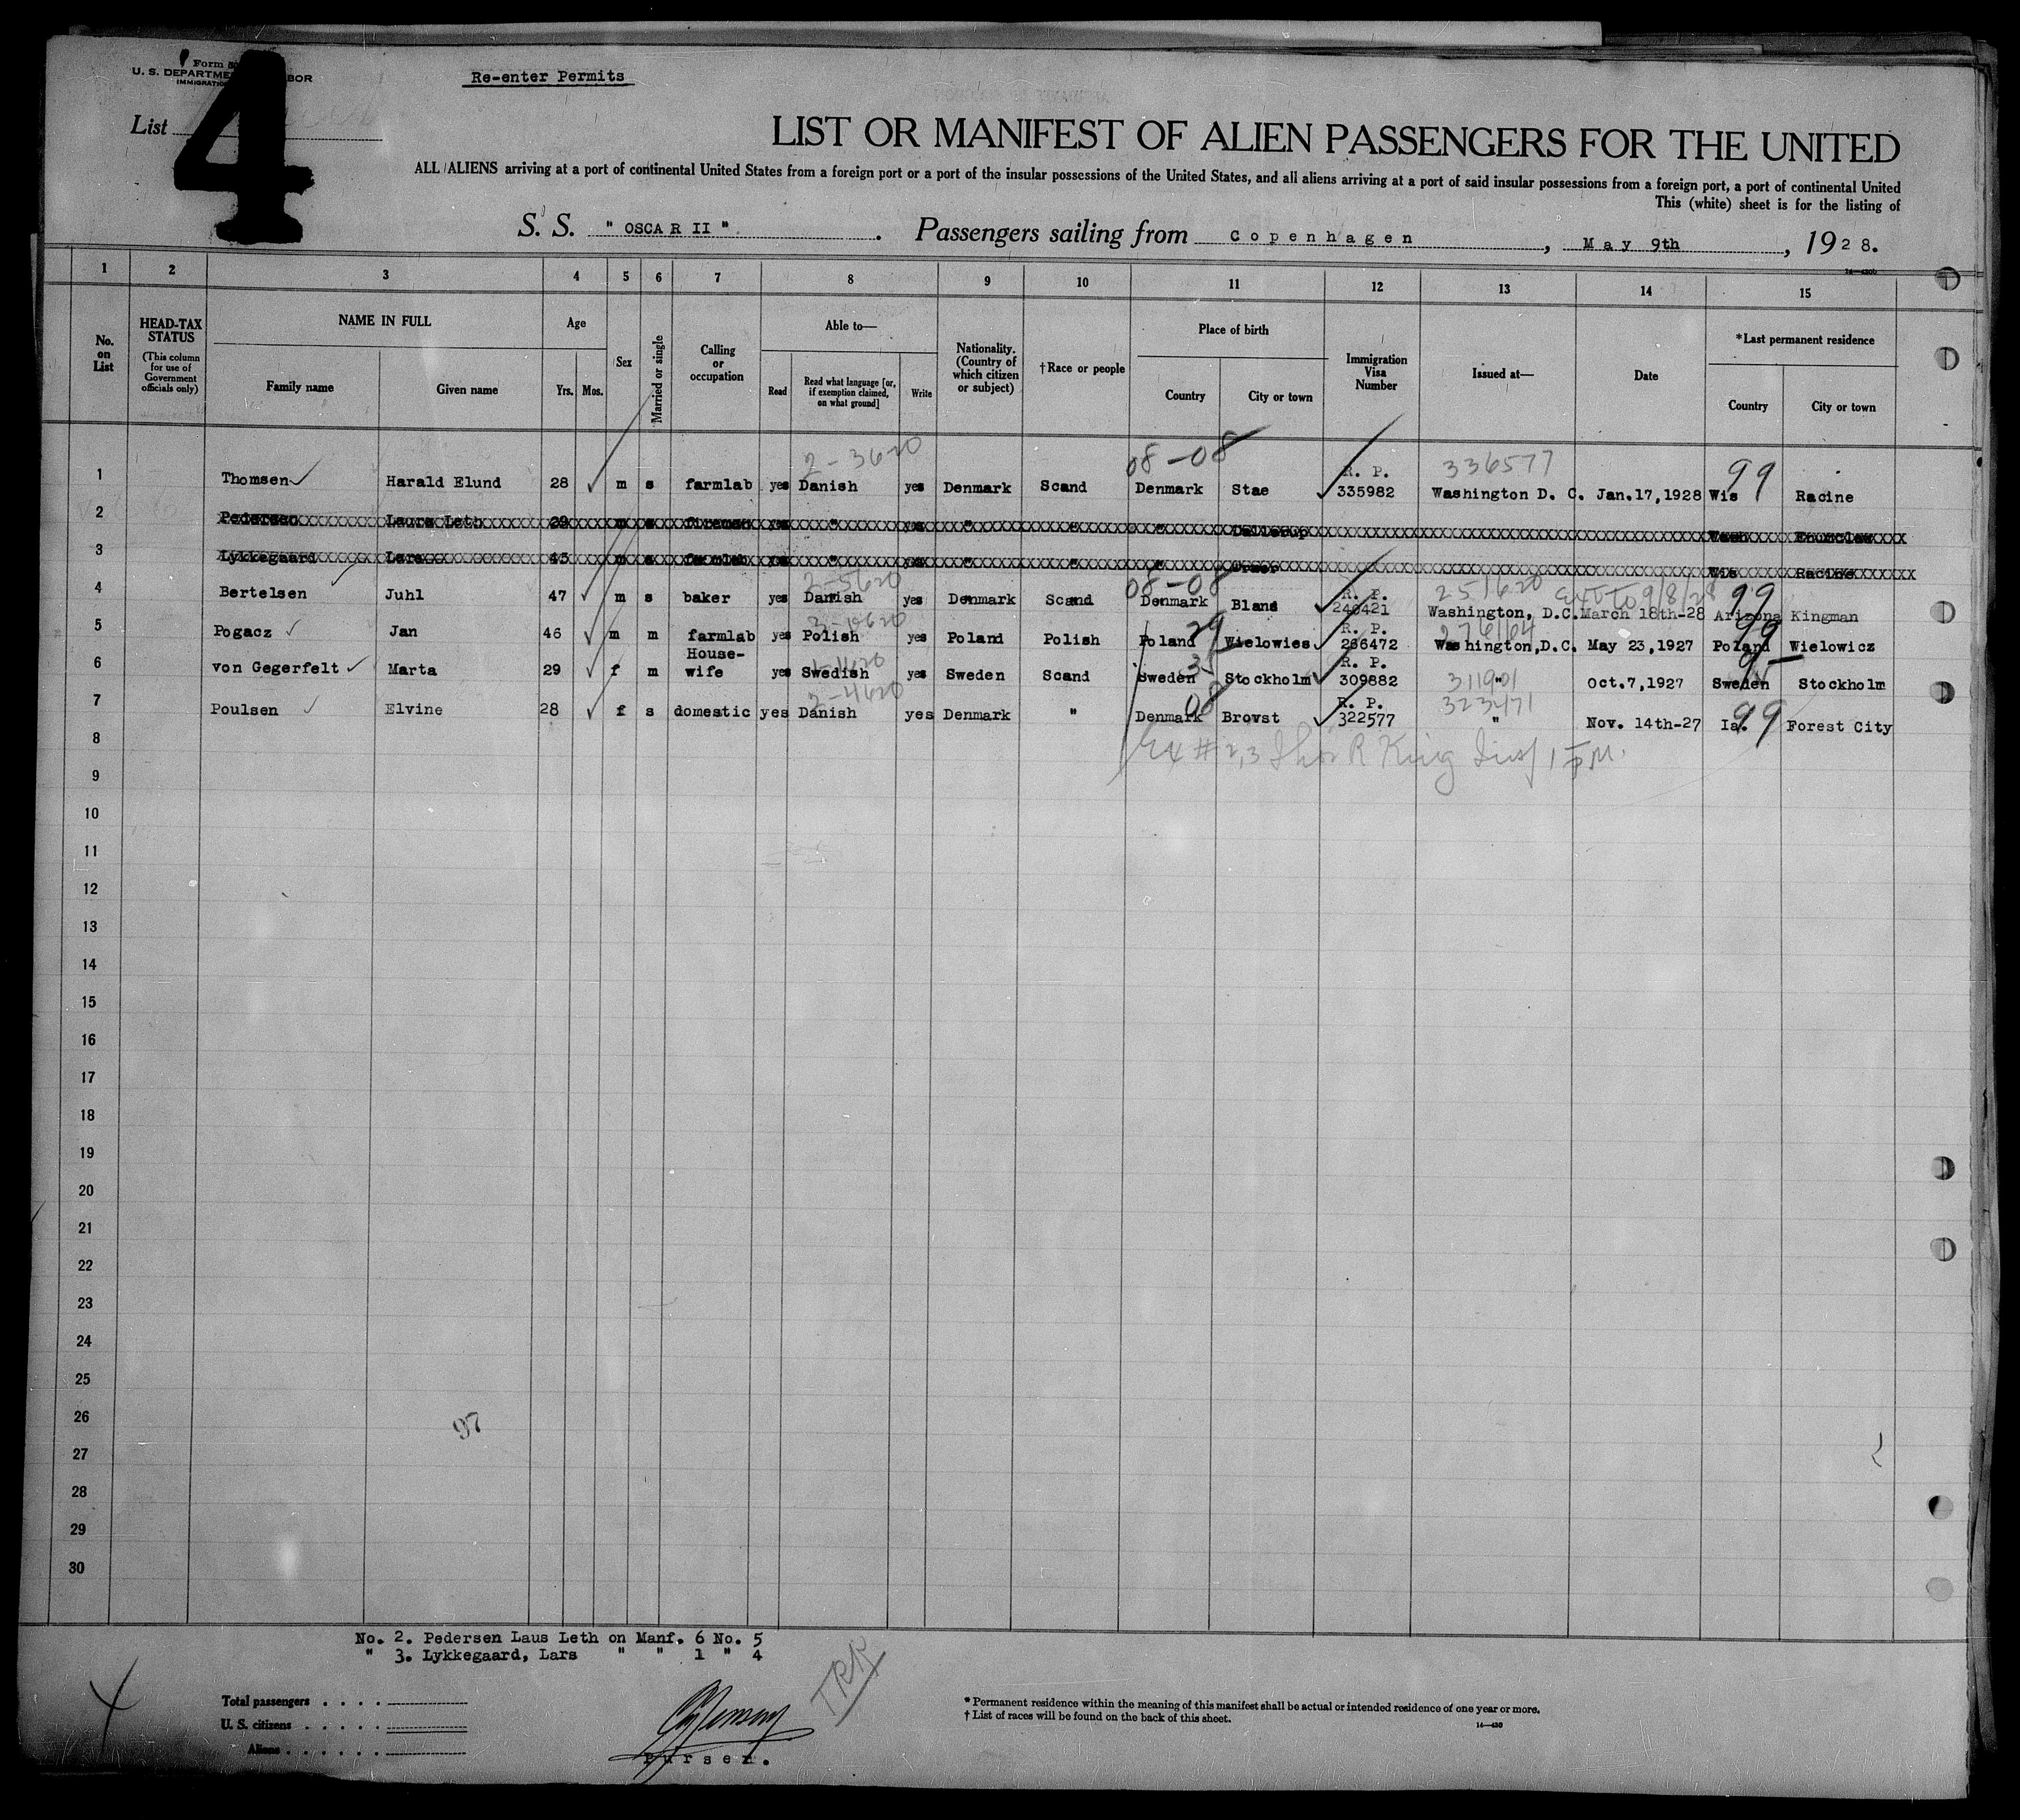 Form
U. S. DEPARTME BOR
IMMIGRATIO
Re-enter Permits
List
4
LIST OR MANIFEST OF ALIEN PASSENGERS FOR THE UNITED
ALL ALIENS arriving at a port of continental United States from a foreign port or a port of the insular possessions of the United States, and all aliens arriving at a port of said insular possessions from a foreign port, a port of continental United
This (white) sheet is for the listing of
S. S. "OSCAR II". Passengers sailing from Copenhagen, May 9th, 1928.
1 2 3 4 5 6 7 8 9 10 11 12 13 14 15
No. on List
HEAD-TAX STATUS
(This column for use of Government officials only)
NAME IN FULL
Family name Given name
Age
Yrs. Mos.
Sex
Married or single
Calling or occupation
Able to—
Read Read what language [or, if exemption claimed, on what ground] Write
Nationality. (Country of which citizen or subject)
†Race or people
Place of birth
Country City or town
Immigration Visa Number
Issued at—
Date
*Last permanent residence
Country City or town
2-3620 08-08 R. P. 336577 99
1 Thomsen Harald Elund 28 m s farmlab yes Danish yes Denmark Scand Denmark Stae 335982 Washington D. C. Jan.17,1928 Wis Racine
2 Pedersen Laurs Leth 29 m s fireman yes " yes " " "
3 Lykkegaard Lars 45 m s farmlab yes " yes " " " Wis Racine
2-5620 08-08 R. P. 251620 Ext to 9/8/28 99
4 Bertelsen Juhl 47 m s baker yes Danish yes Denmark Scand Denmark Bland 240421 Washington, D.C. March 18th-28 Arizona Kingman
29 R. P. 276104 99
5 Pogacz Jan 46 m m farmlab yes Polish yes Poland Polish Poland Wielowies 266472 Washington,D.C. May 23,1927 Poland Wielowicz
House- 35 R. P. 311901
6 von Gegerfelt Marta 29 f m wife yes Swedish yes Sweden Scand Sweden Stockholm 309882 " Oct.7,1927 Sweden Stockholm
2-4620 08 R. P. 323471 99
7 Poulsen Elvine 28 f s domestic yes Danish yes Denmark " Denmark Brovst 322577 " Nov. 14th-27 Ia. Forest City
8
9
10
11
12
13
14
15
16
17
18
19
20
21
22
23
24
25
26
97
27
28
29
30
No. 2. Pedersen Laus Leth on Manf. 6 No. 5
" 3. Lykkegaard, Lars " " 1 " 4
TRK
Total passengers . . . .
U. S. citizens . . . . .
Aliens . . . . . .
Purser.
* Permanent residence within the meaning of this manifest shall be actual or intended residence of one year or more.
† List of races will be found on the back of this sheet.
14—430